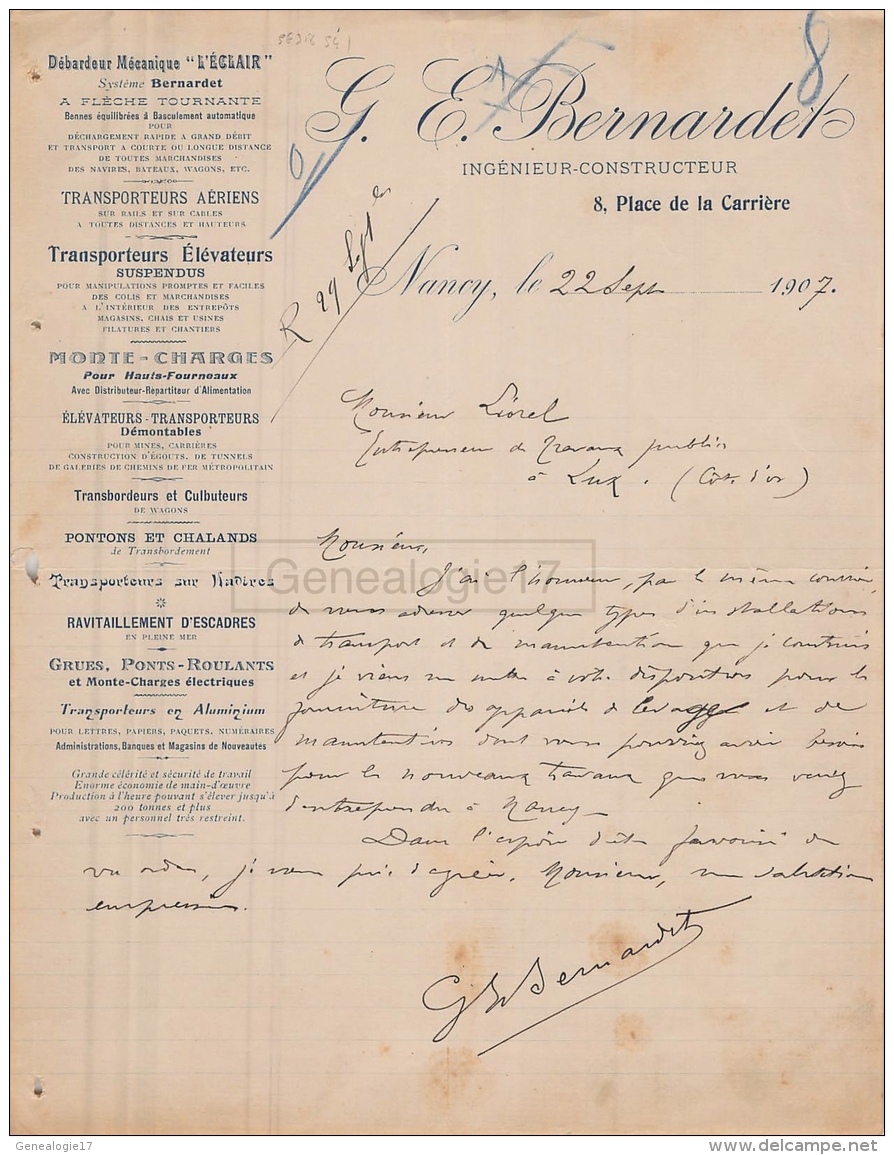 Débardeur Mécanique "L'ÉCLAIR"
Système Bernardet
A FLÈCHE TOURNANTE
Bennes équilibrées à Basculement automatique
POUR
DÉCHARGEMENT RAPIDE A GRAND DÉBIT
ET TRANSPORT A COURTE OU LONGUE DISTANCE
DE TOUTES MARCHANDISES
DES NAVIRES, BATEAUX, WAGONS, ETC.
TRANSPORTEURS AÉRIENS
SUR RAILS ET SUR CABLES
A TOUTES DISTANCES ET HAUTEURS
Transporteurs Élévateurs
SUSPENDUS
POUR MANIPULATIONS PROMPTES ET FACILES
DES COLIS ET MARCHANDISES
A L'INTÉRIEUR DES ENTREPÔTS
MAGASINS, CHAIS ET USINES
FILATURES ET CHANTIERS
MONTE-CHARGES
Pour Hauts-Fourneaux
Avec Distributeur-Répartiteur d'Alimentation
ÉLÉVATEURS-TRANSPORTEURS
Démontables
POUR MINES, CARRIÈRES
CONSTRUCTION D'ÉGOUTS, DE TUNNELS
DE GALERIES DE CHEMINS DE FER MÉTROPOLITAIN
Transbordeurs et Culbuteurs
DE WAGONS
PONTONS ET CHALANDS
de Transbordement
Transporteurs sur Navires
RAVITAILLEMENT D'ESCADRES
EN PLEINE MER
GRUES, PONTS-ROULANTS
et Monte-Charges électriques
Transporteurs en Aluminium
POUR LETTRES, PAPIERS, PAQUETS, NUMÉRAIRES
Administrations, Banques et Magasins de Nouveautés
Grande célérité et sécurité de travail
Enorme économie de main-d'œuvre
Production à l'heure pouvant s'élever jusqu'à
200 tonnes et plus
avec un personnel très restreint.
8
G. E. Bernardet
INGÉNIEUR-CONSTRUCTEUR
8, Place de la Carrière
R 29 Sept
Nancy, le 22 Sept 1907.
Monsieur Liorel
Entrepreneur de Travaux publics
à Lux. (Côte d'or)
Monsieur,
J'ai l'honneur, par le même courrier,
de vous adresser quelques types d'installations
de transport et de manutention que je construis
et je viens me mettre à votre disposition pour la
fourniture des appareils de levage et de
manutention dont vous pourriez avoir besoin
pour les nouveaux travaux que vous venez
d'entreprendre à Nancy.
Dans l'espoir d'être favorisé de
vos ordres, je vous prie d'agréer, Monsieur, mes salutations
empressées.
G E Bernardet
Genealogie17
Genealogie17
www.delcampe.net